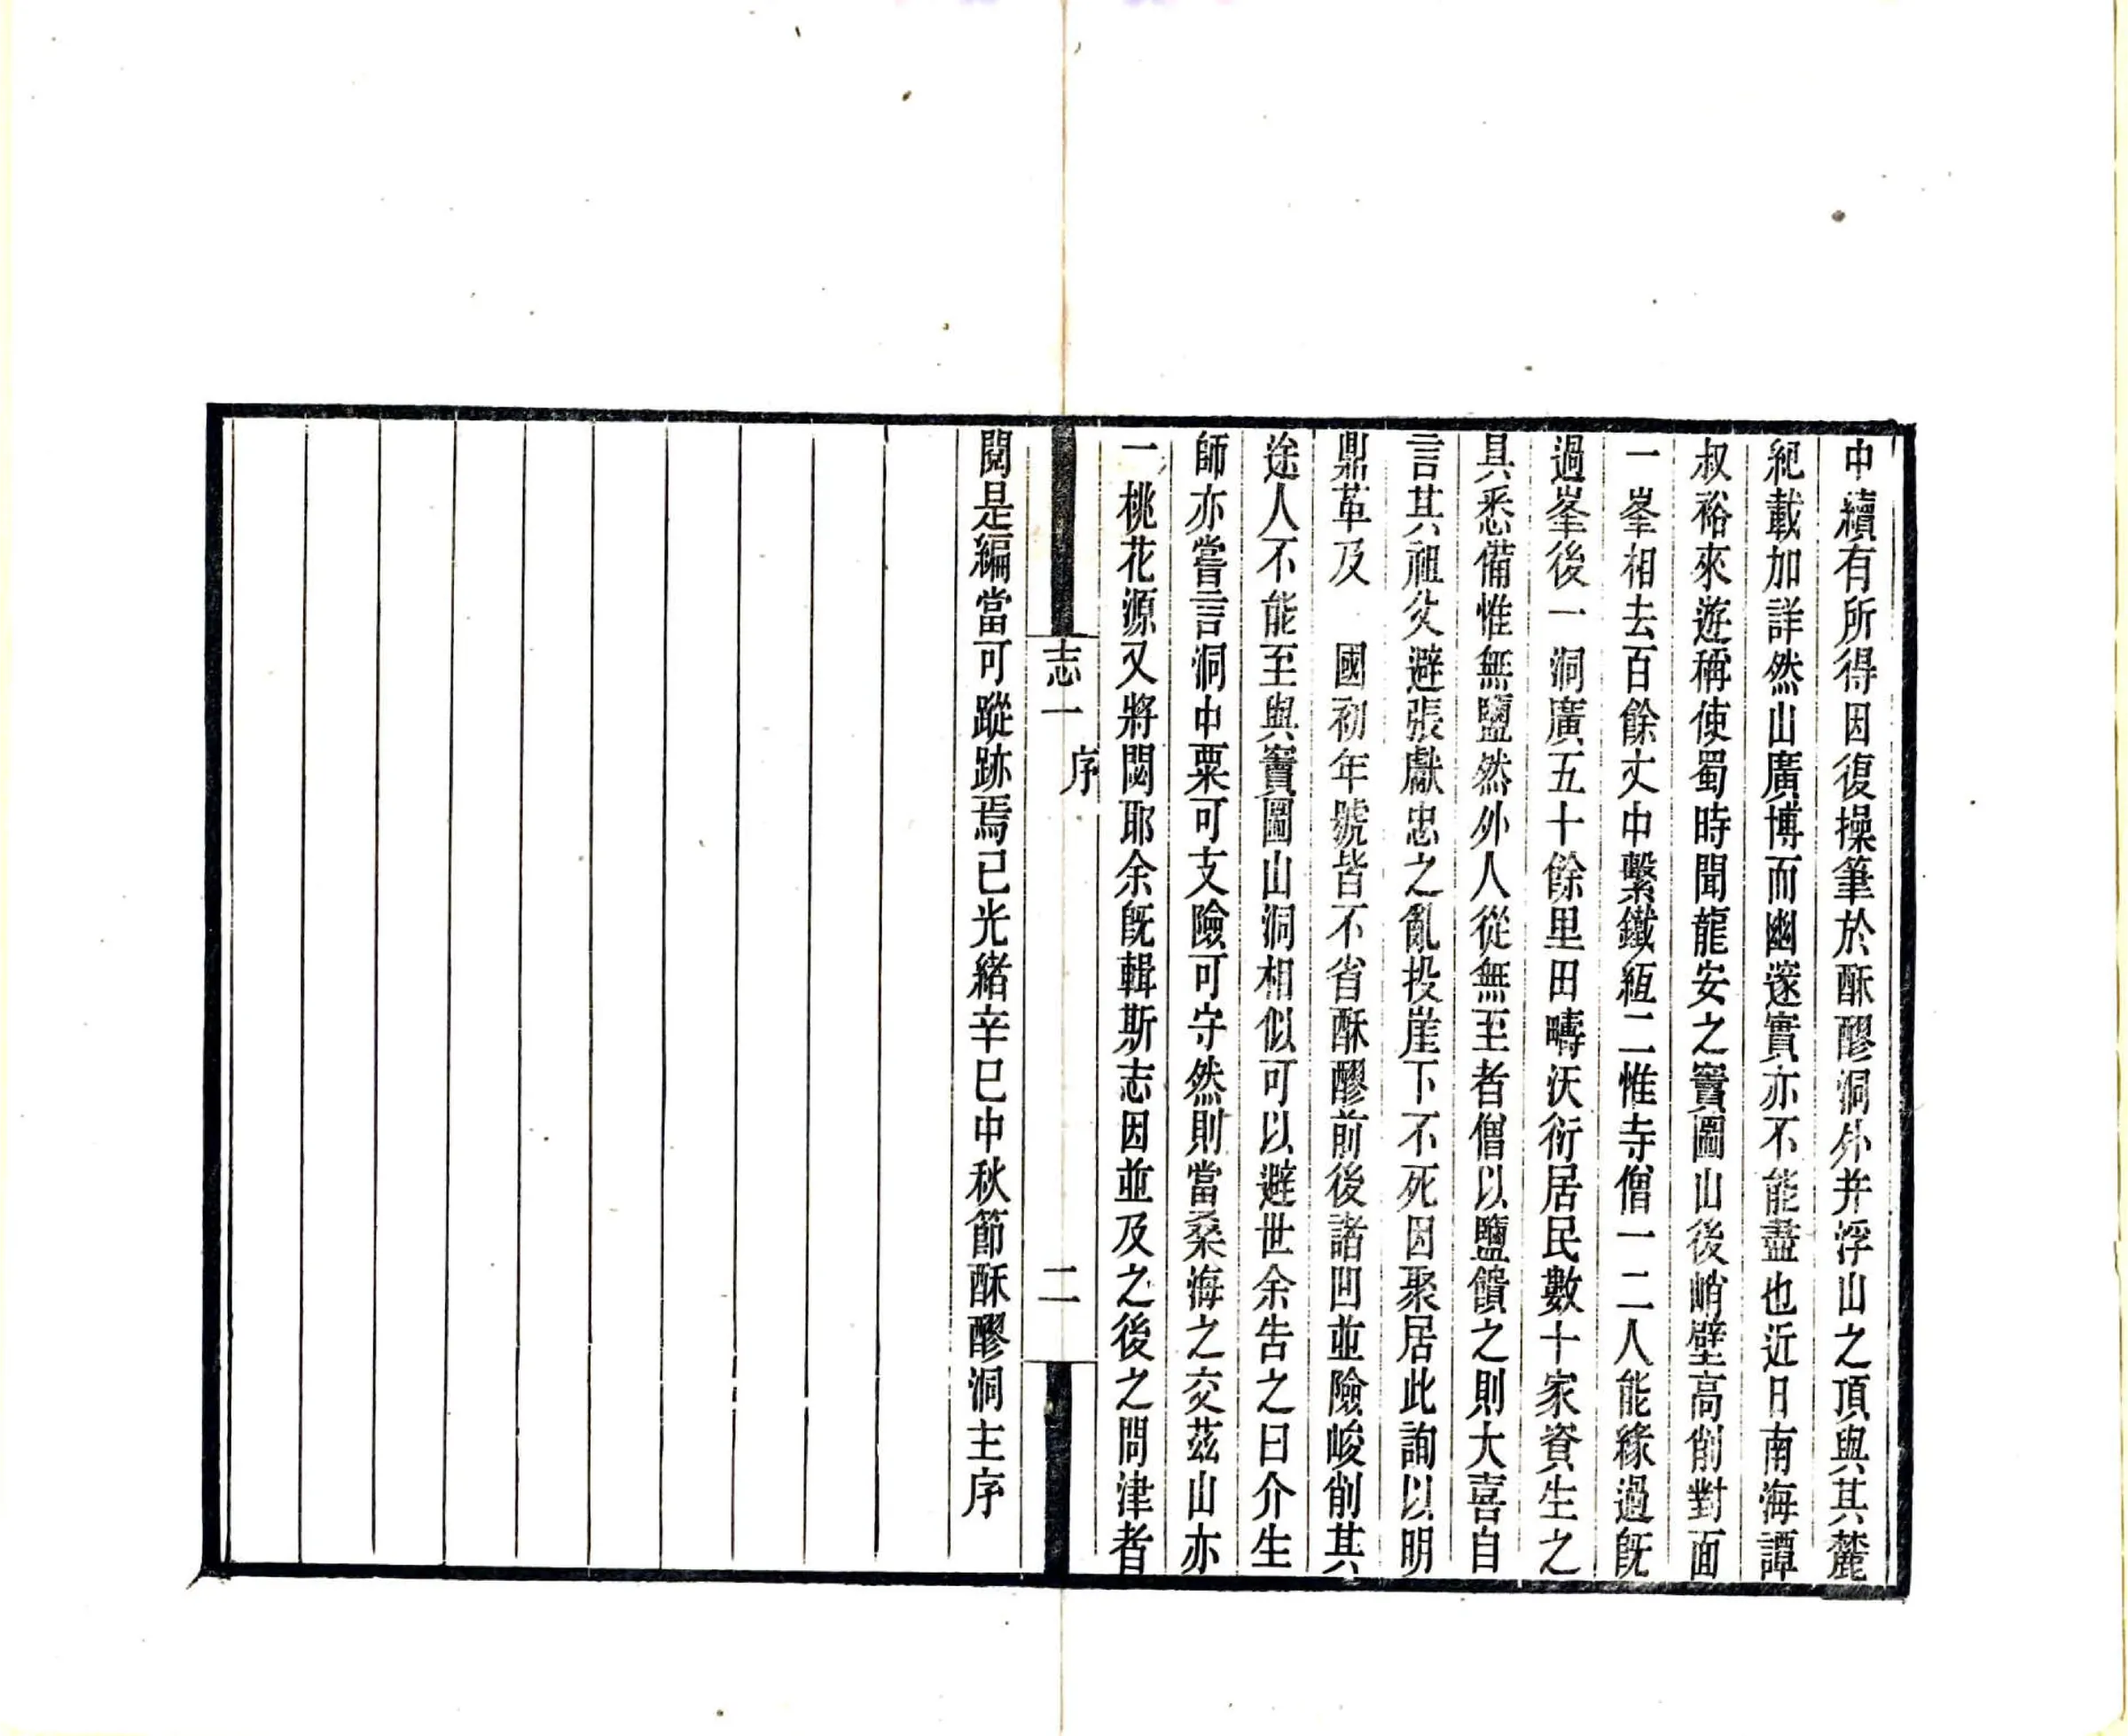 中續有所得因復操筆於酥醪洞外并浮山之頂與其麓
紀載加詳然山廣博而幽邃實亦不能盡也近日南海譚
叔裕來遊稱使蜀時聞龍安之竇圌山後峭壁高削對面
一峯相去百餘丈中繫鐵絙二惟寺僧一二人能緣過旣
過峯後一洞廣五十餘里田疇沃衍居民數十家資生之
具悉備惟無鹽然外人從無至者僧以鹽饋之則大喜自
言其祖父避張獻忠之亂投崖下不死因聚居此詢以明
鼎革及　國初年號皆不省酥醪前後諸凹並險峻削其
途人不能至與竇圌山洞相似可以避世余告之曰介生
師亦嘗言洞中粟可支險可守然則當桑海之交茲山亦
一桃花源又將閟耶余旣輯斯志因並及之後之問津者
志一
序
二
閱是編當可蹤跡焉已光緒辛巳中秋節酥醪洞主序